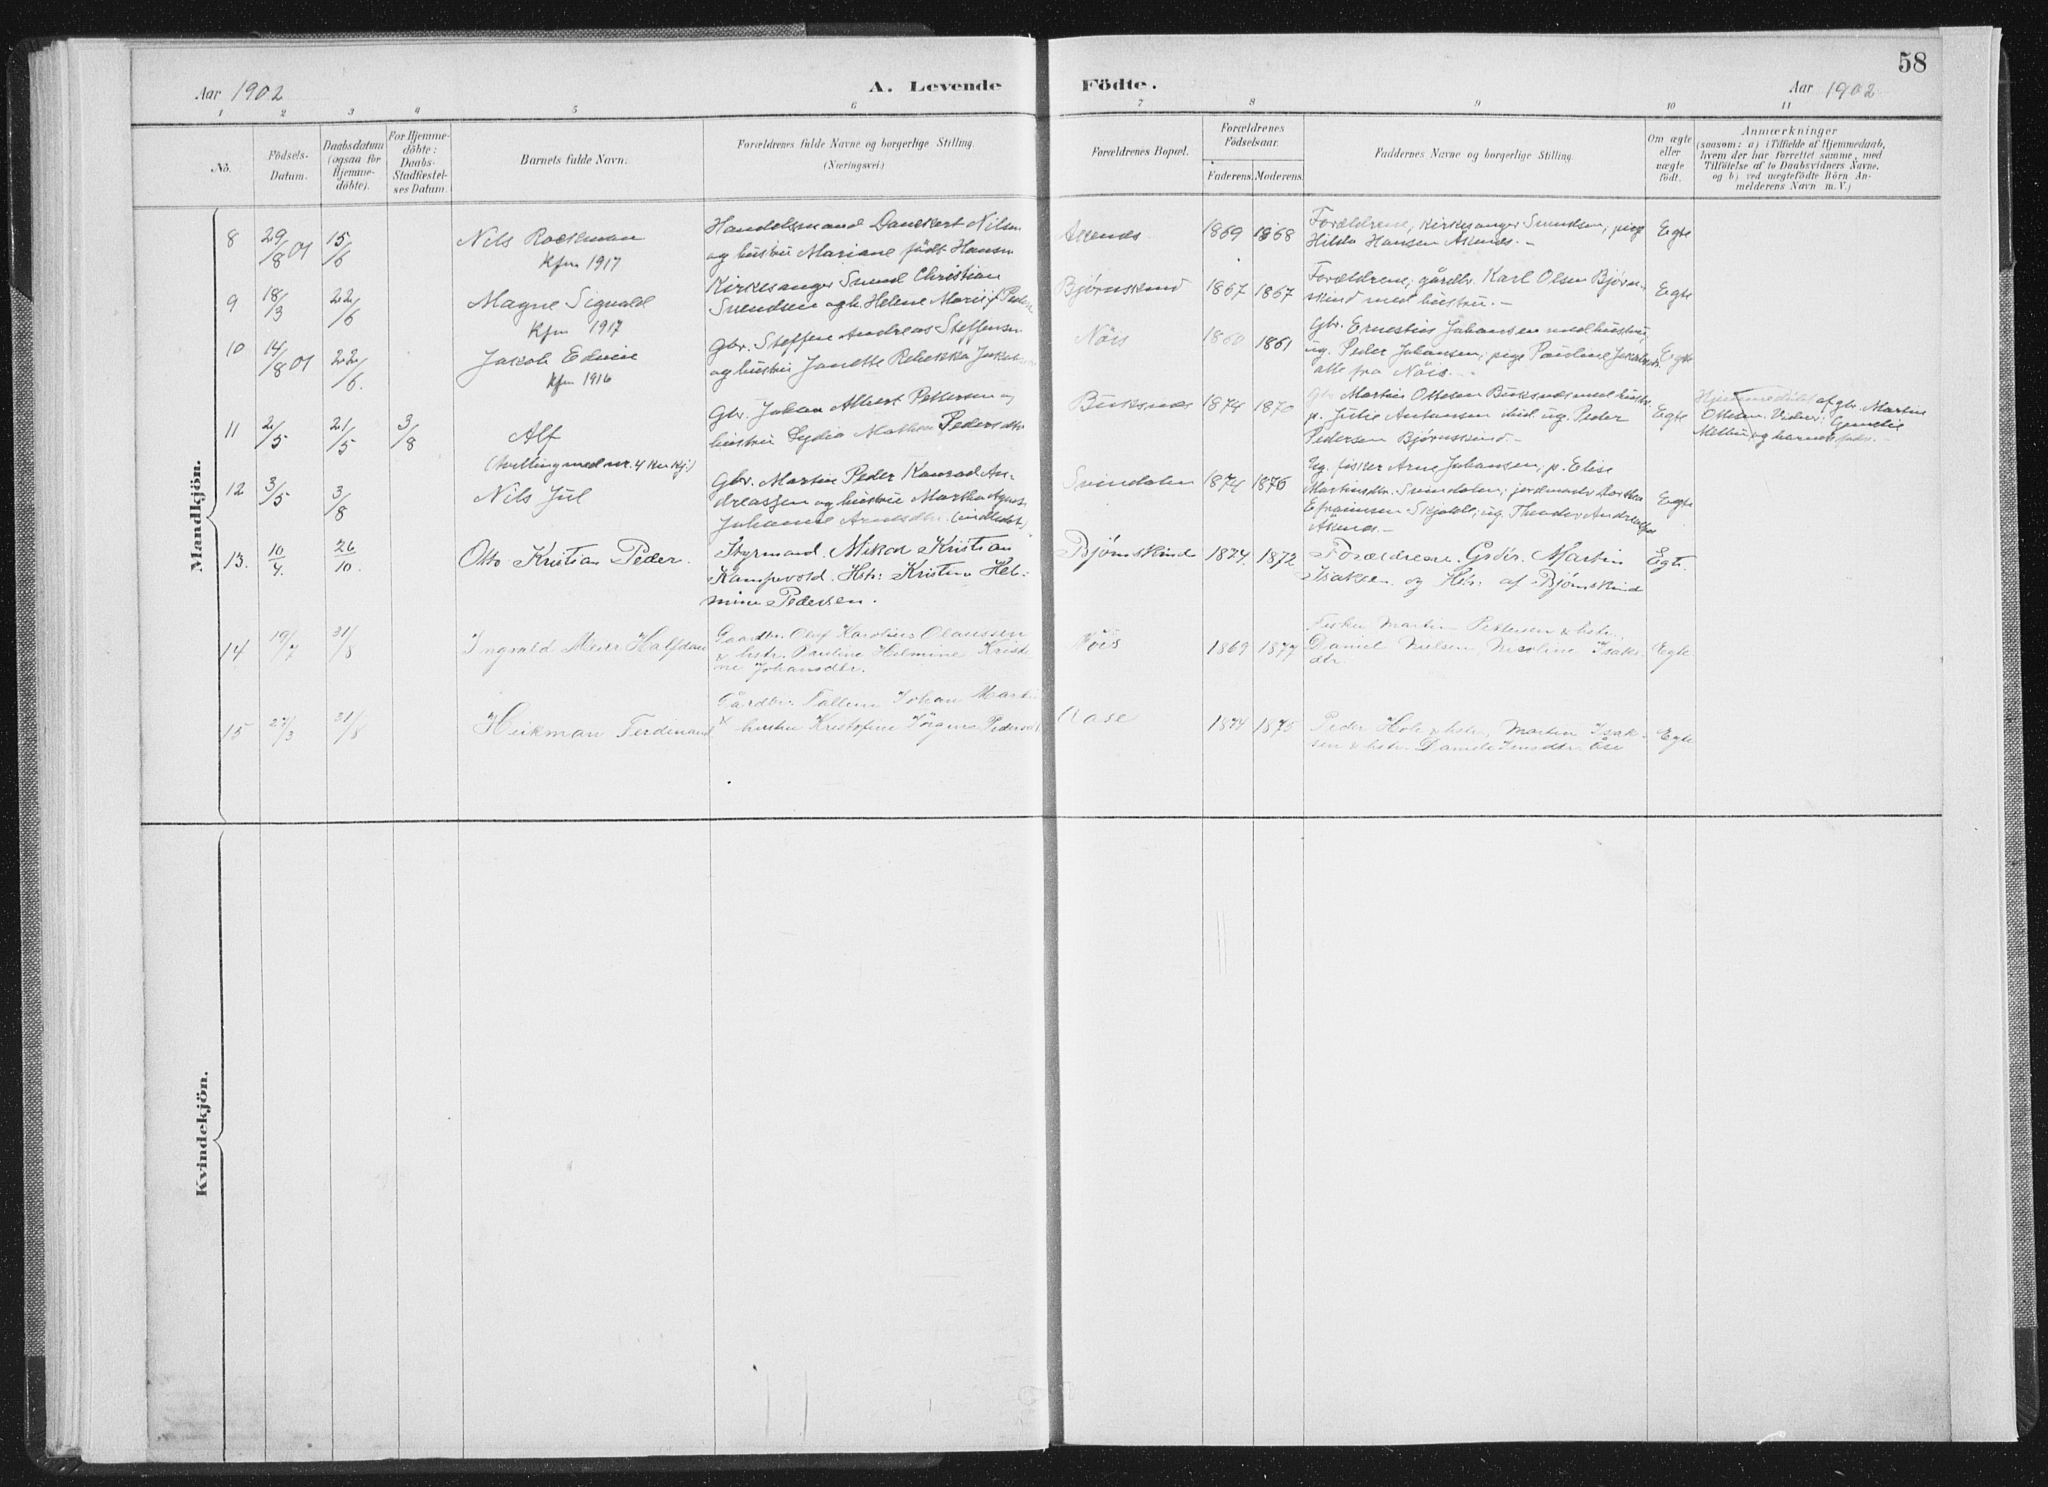 58
Aar 1902
A. Levende
Födte.
Aar 1902
1 2 3 4 5 6 7 8 9 10 11
No.
Födsels-
Datum.
Daabsdatum
(ogsaa for
Hjemme-
döbte).
For Hjemme-
döbte:
Daabs-
Stadfæstel-
ses Datum.
Barnets fulde Navn.
Forældrenes fulde Navne og borgerlige Stilling.
(Næringsvei.)
Forældrenes Bopæl.
Forældrenes
Födselsaar.
Faderens. Moderens.
Faddernes Navne og borgerlige Stilling.
Om ægte
eller
uægte
födt.
Anmærkninger
(saasom: a) i Tilfælde af Hjemmedaab,
hvem der har forrettet samme, med
Tilföielse af to Daabsvidners Navne,
og b) ved uægtefödte Börn An-
melderens Navn m. V.)
Mandkjön.
8 29/8 01 15/6
Nils Rockman
kfm 1917
Handelsmand Danckert Nilsen
og hustru Mariane født Hansen
Aknes
1869 1868
Forældrene, kirkesanger Svendsen, pige
Hilda Hansen Aknes.-
Egte
9 18/3 22/6
Magne Signald
kfm 1917
Kirkesanger Svend Christian
Svendsen og h. Helene Marie f. Peders
Bjørnskind
1867 1867
Forældrene; gårdbr. Karl Olsen Bjørn-
skind med hustru.-
Egte
10 14/8 01 22/6.
Jakob Edvin
kfm 1916
Gbr. Steffen Andreas Steffensen
og hustru Janette Rebekka Jakobs
Nöis
1860 1861
Gbr. Ernestus Johansen med hustru,
ug. Peder Johansen, pige Pauline Jakobsdtr.
alle fra Nöis.-
Egte
11 2/5 21/5 3/8
Alf
(tvilling med nr. 4 kv. kj.)
Gbr. Johan Albert Pettersen og
hustru Lydia Mathea Pedersdtr
Buksnes
1874 1870
Gbr. Martin Ottesen Buksnes med hustr.
p. Julie Antonsen ibid ug. Peder
Pedersen Bjørnskind.-
Egte
Hjemmedöbt af gbr. Martin
Ottesen. Vidner:
og barnets fader.-
12 3/5 3/8
Nils Jul
Gbr. Martin Peder Konrad An-
dreassen og hustru Martha Agnes
Johanne Arntsdtr. (indledet)
Svindalen
1874 1876
Ug. fisker Arne Johansen, p. Elise
Martinsdtr. Svindalen; jordmoder Dorthea
Efraimsen Skjold; ug. Theodor Andreassen
Åknes.-
Egte
13. 10/4. 26/10.
Otto Kristian Peder.
Styrmand. Mikal Kristian
Kampevold. Hstr: Kristine Hel-
mine Pedersen.
Bjørnskind
1874. 1872
Forældrene. Grdbr. Martin
Isaksen og Hstr: af Bjørnskind
Egte.
14 19/7 31/8
Ingvald Meier Halfdan
Gaardbr. Oluf Karolius Olaussen
& hstr. Pauline Helmine Kristi
ne Johansdtr.
Nöis
1869 1877
Fisker Martin Pettersen & hstr.,
Daniel Nielsen, Nicoline Isaks-
dtr.
Egte
15 27/3 31/8
Heikman Ferdinand
Gårdbr. Tollem Johan Martin
& hustru Kristofine Jörgine Pedersdtr
Aase
1874 1875
Peder Hole & hstr., Martin Isak-
sen & hstr. Daniela Jensdtr. Åse
Egte
Kvindekjön.